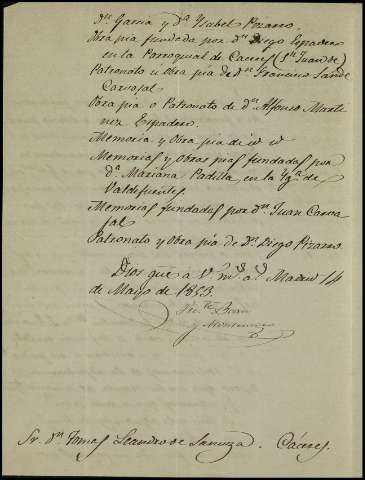 Dn. Garcia y Dª Isabel Pizarro.
Obra pia fundada por dn Diego Espadero
en la Parroquial de Caceres (Sn Juan de)
Patronato u Obra pia de dn Francisco Sande
Carvajal
Obra pia o Patronato de dn Alfonso Marti-
nez Espadero.
Memoria y Obra pia de id id
Memorias y Obras pias fundadas por
dª Mariana Padilla, en la Yga. de
Valdefuentes.
Memorias fundadas por dn Juan Carva-
jal
Patronato y Obra pia de Dn Diego Pizarro
Dios gue a V. ms. as. Madrid 14
de Mayo de 1853.
y
Sr. dn Tomas Leandro de Sanuza. Cáceres.